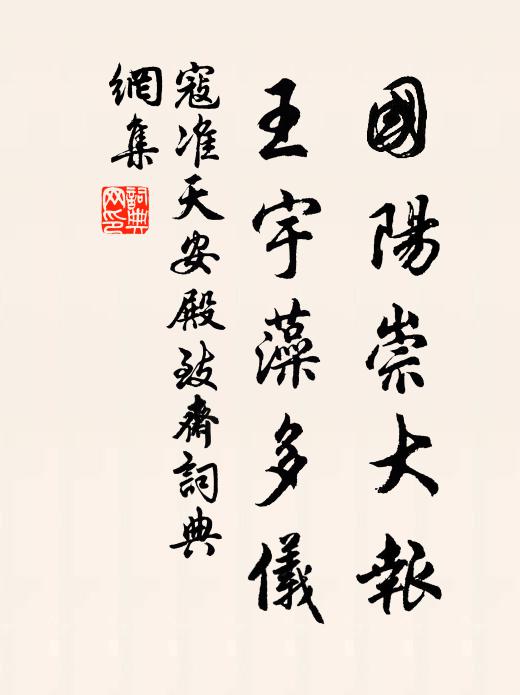 國陽崇大報
王宇藻多儀
寇准天安殿致齋詞典
網集
詞典網印